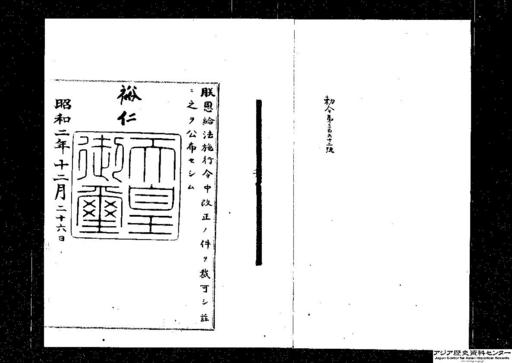 勅令第三百六十三號
朕恩給法施行令中改正ノ件ヲ裁可シ茲
ニ之ヲ公布セシム
裕仁
天皇
御璽
昭和二年十二月二十六日
アジア歴史資料センター
Japan Center for Asian Historical Records